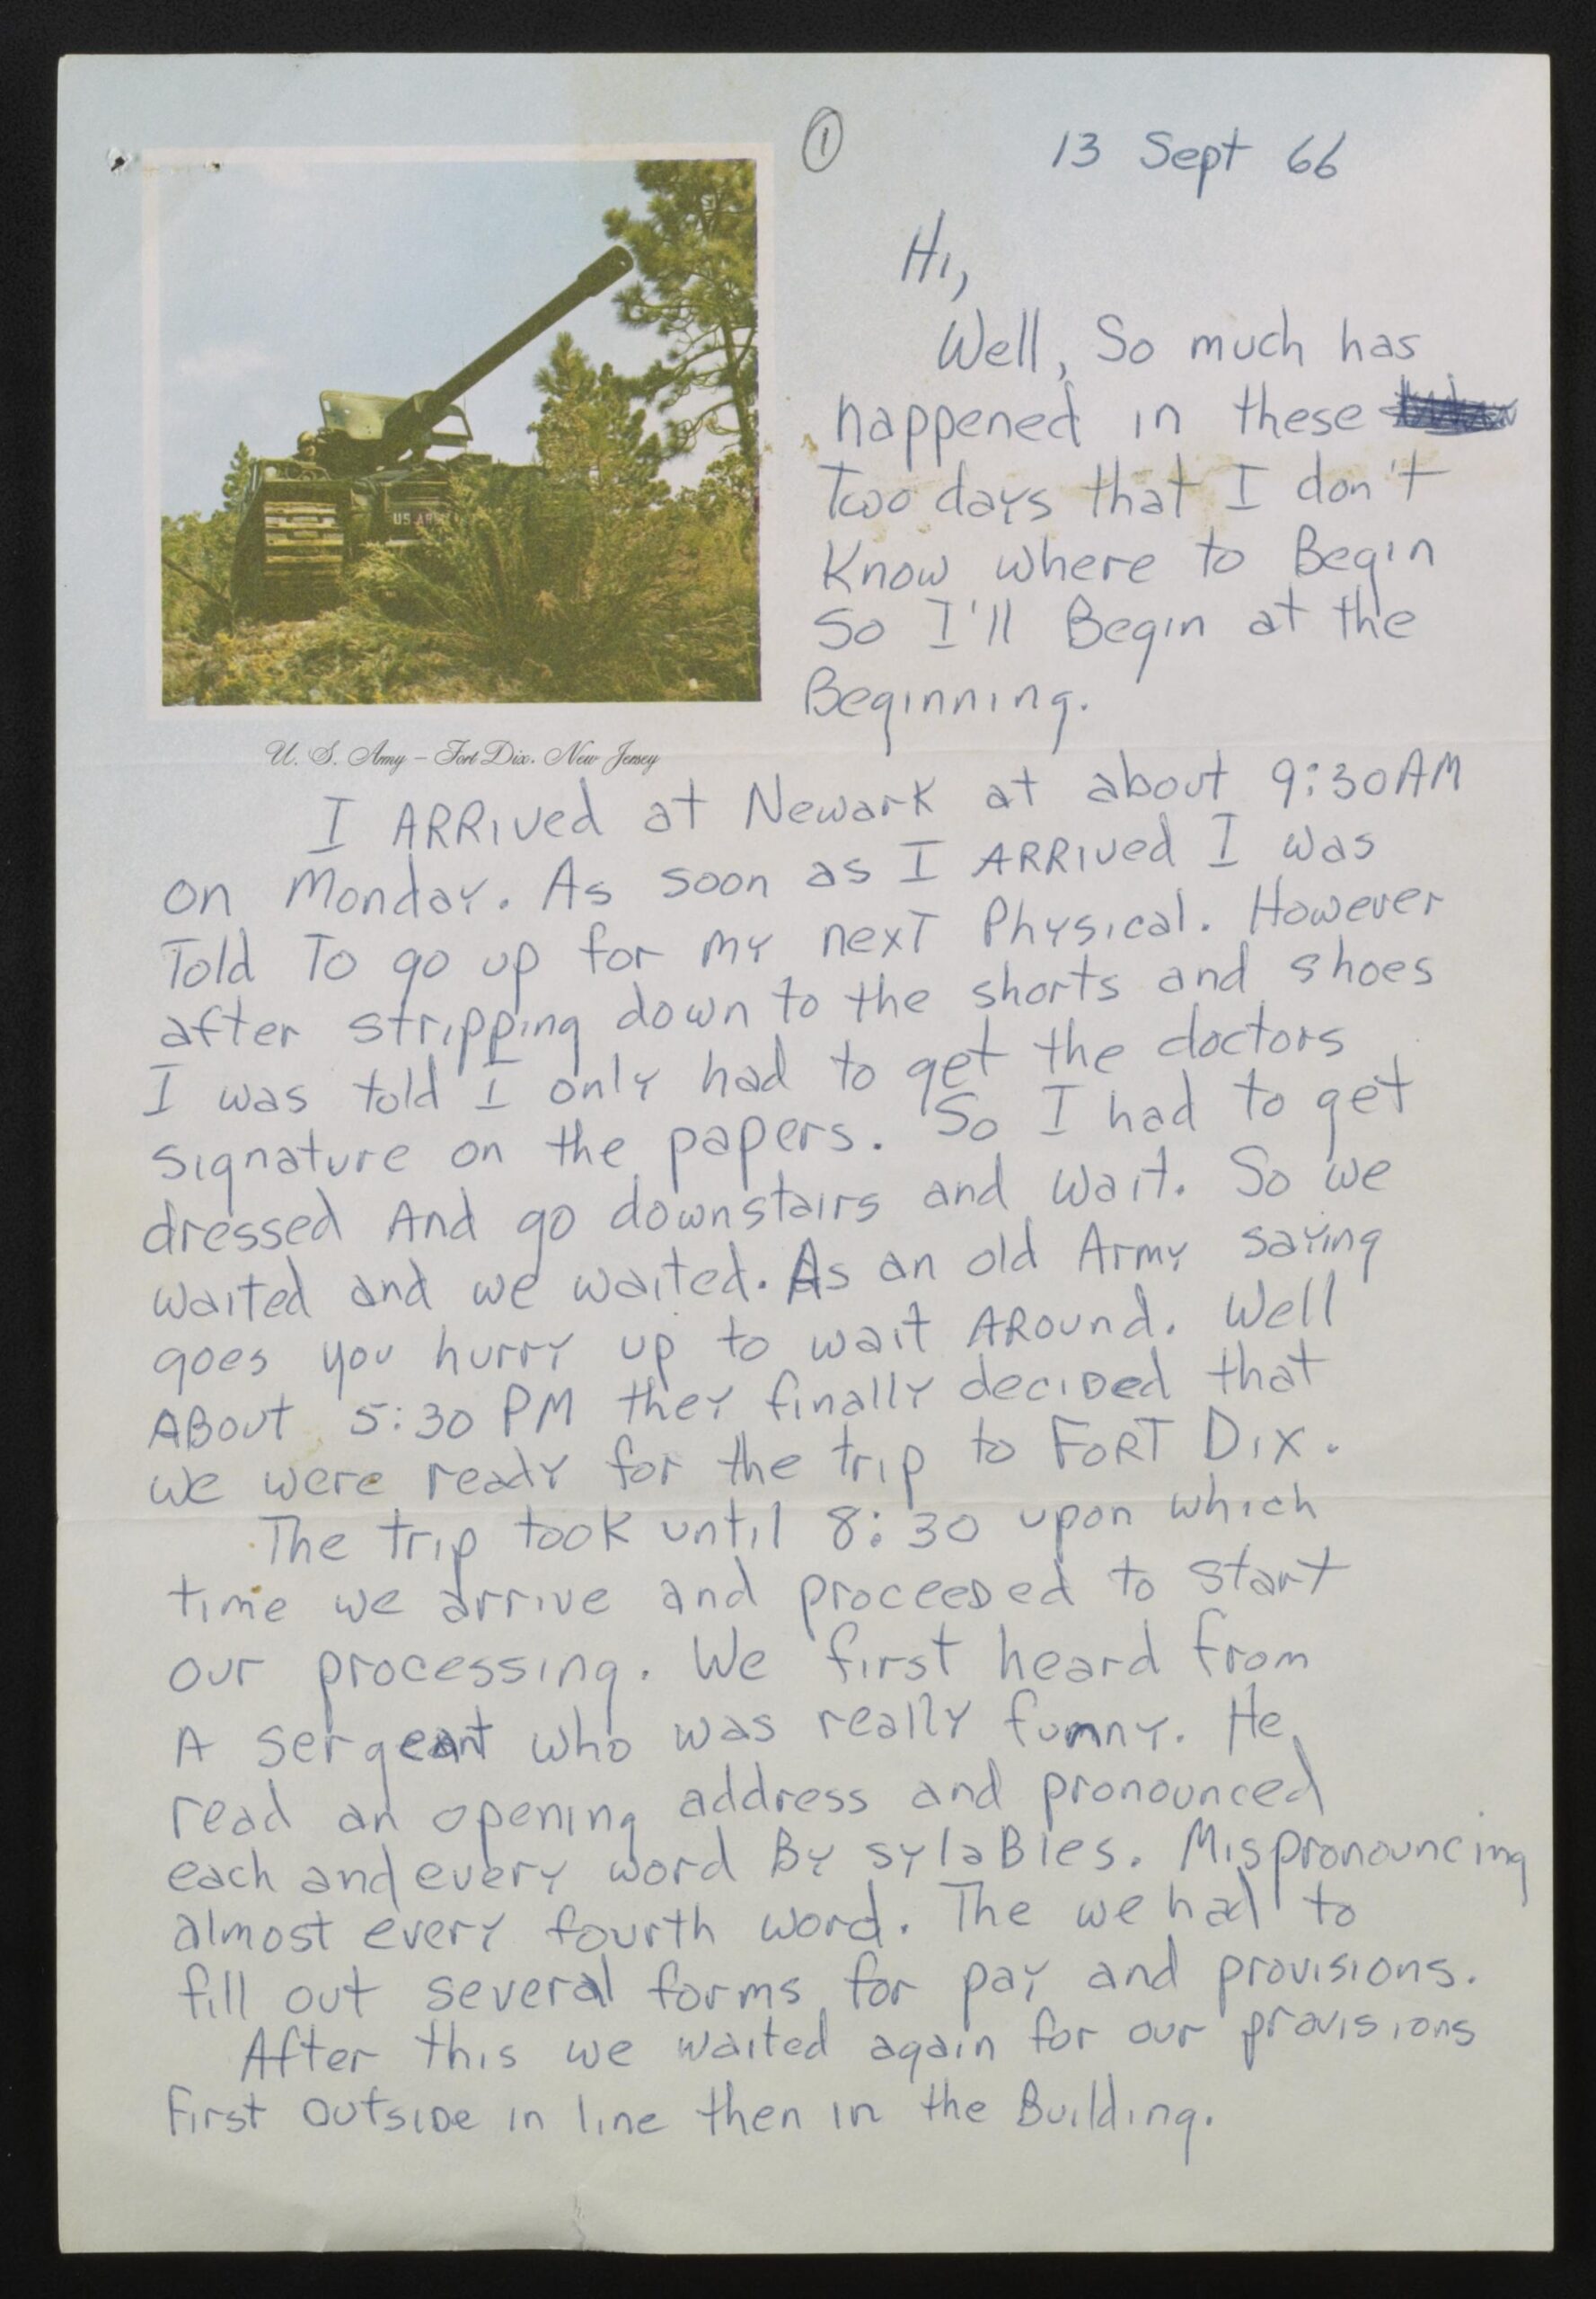 ①
13 Sept 66
Hi,
Well, So much has
happened in these
Two days that I don't
Know where to Begin
So I'll Begin at the
Beginning.
US ARMY
U. S. Army – Fort Dix, New Jersey
I ARRived at Newark at about 9:30 AM
on Monday. As soon as I ARRIVED I was
Told To go up for my next Physical. However
after stripping down to the shorts and shoes
I was told I only had to get the doctors
signature on the papers. So I had to get
dressed And go downstairs and wait. So we
waited and we waited. As an old Army saying
goes you hurry up to wait AROUND. Well
ABout 5:30 PM they finally deciDed that
we were ready for the trip to FORT DIX.
The trip took until 8:30 upon which
time we arrive and proceeDed to start
our processing. We first heard from
A sergeant who was really funny. He
read an opening address and pronounced
each and every word By sylaBles. Mispronouncing
almost every fourth word. The we had to
fill out several forms for pay and provisions.
After this we waited again for our provisions
first outsiDe in line then in the Building.